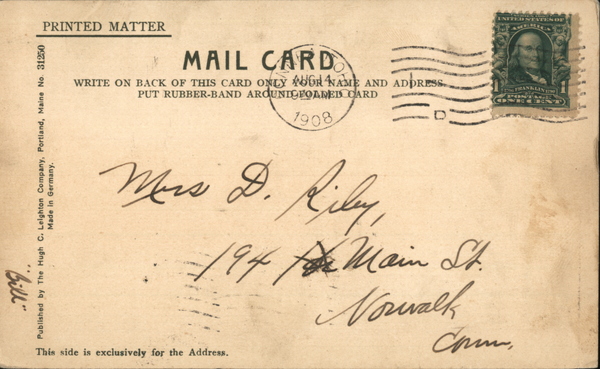 PRINTED MATTER
MAIL CARD
WRITE ON BACK OF THIS CARD ONLY YOUR NAME AND ADDRESS
PUT RUBBER-BAND AROUND FOLDED CARD
AUG 14
1908
UNITED STATES OF
AMERICA
FRANKLIN
1 POSTAGE 1
ONE CENT
Mrs D. Riley,
194 Main St.
Norwalk
Conn,
"Bill"
Published by The Hugh C. Leighton Company, Portland, Maine No. 31250
Made in Germany.
This side is exclusively for the Address.